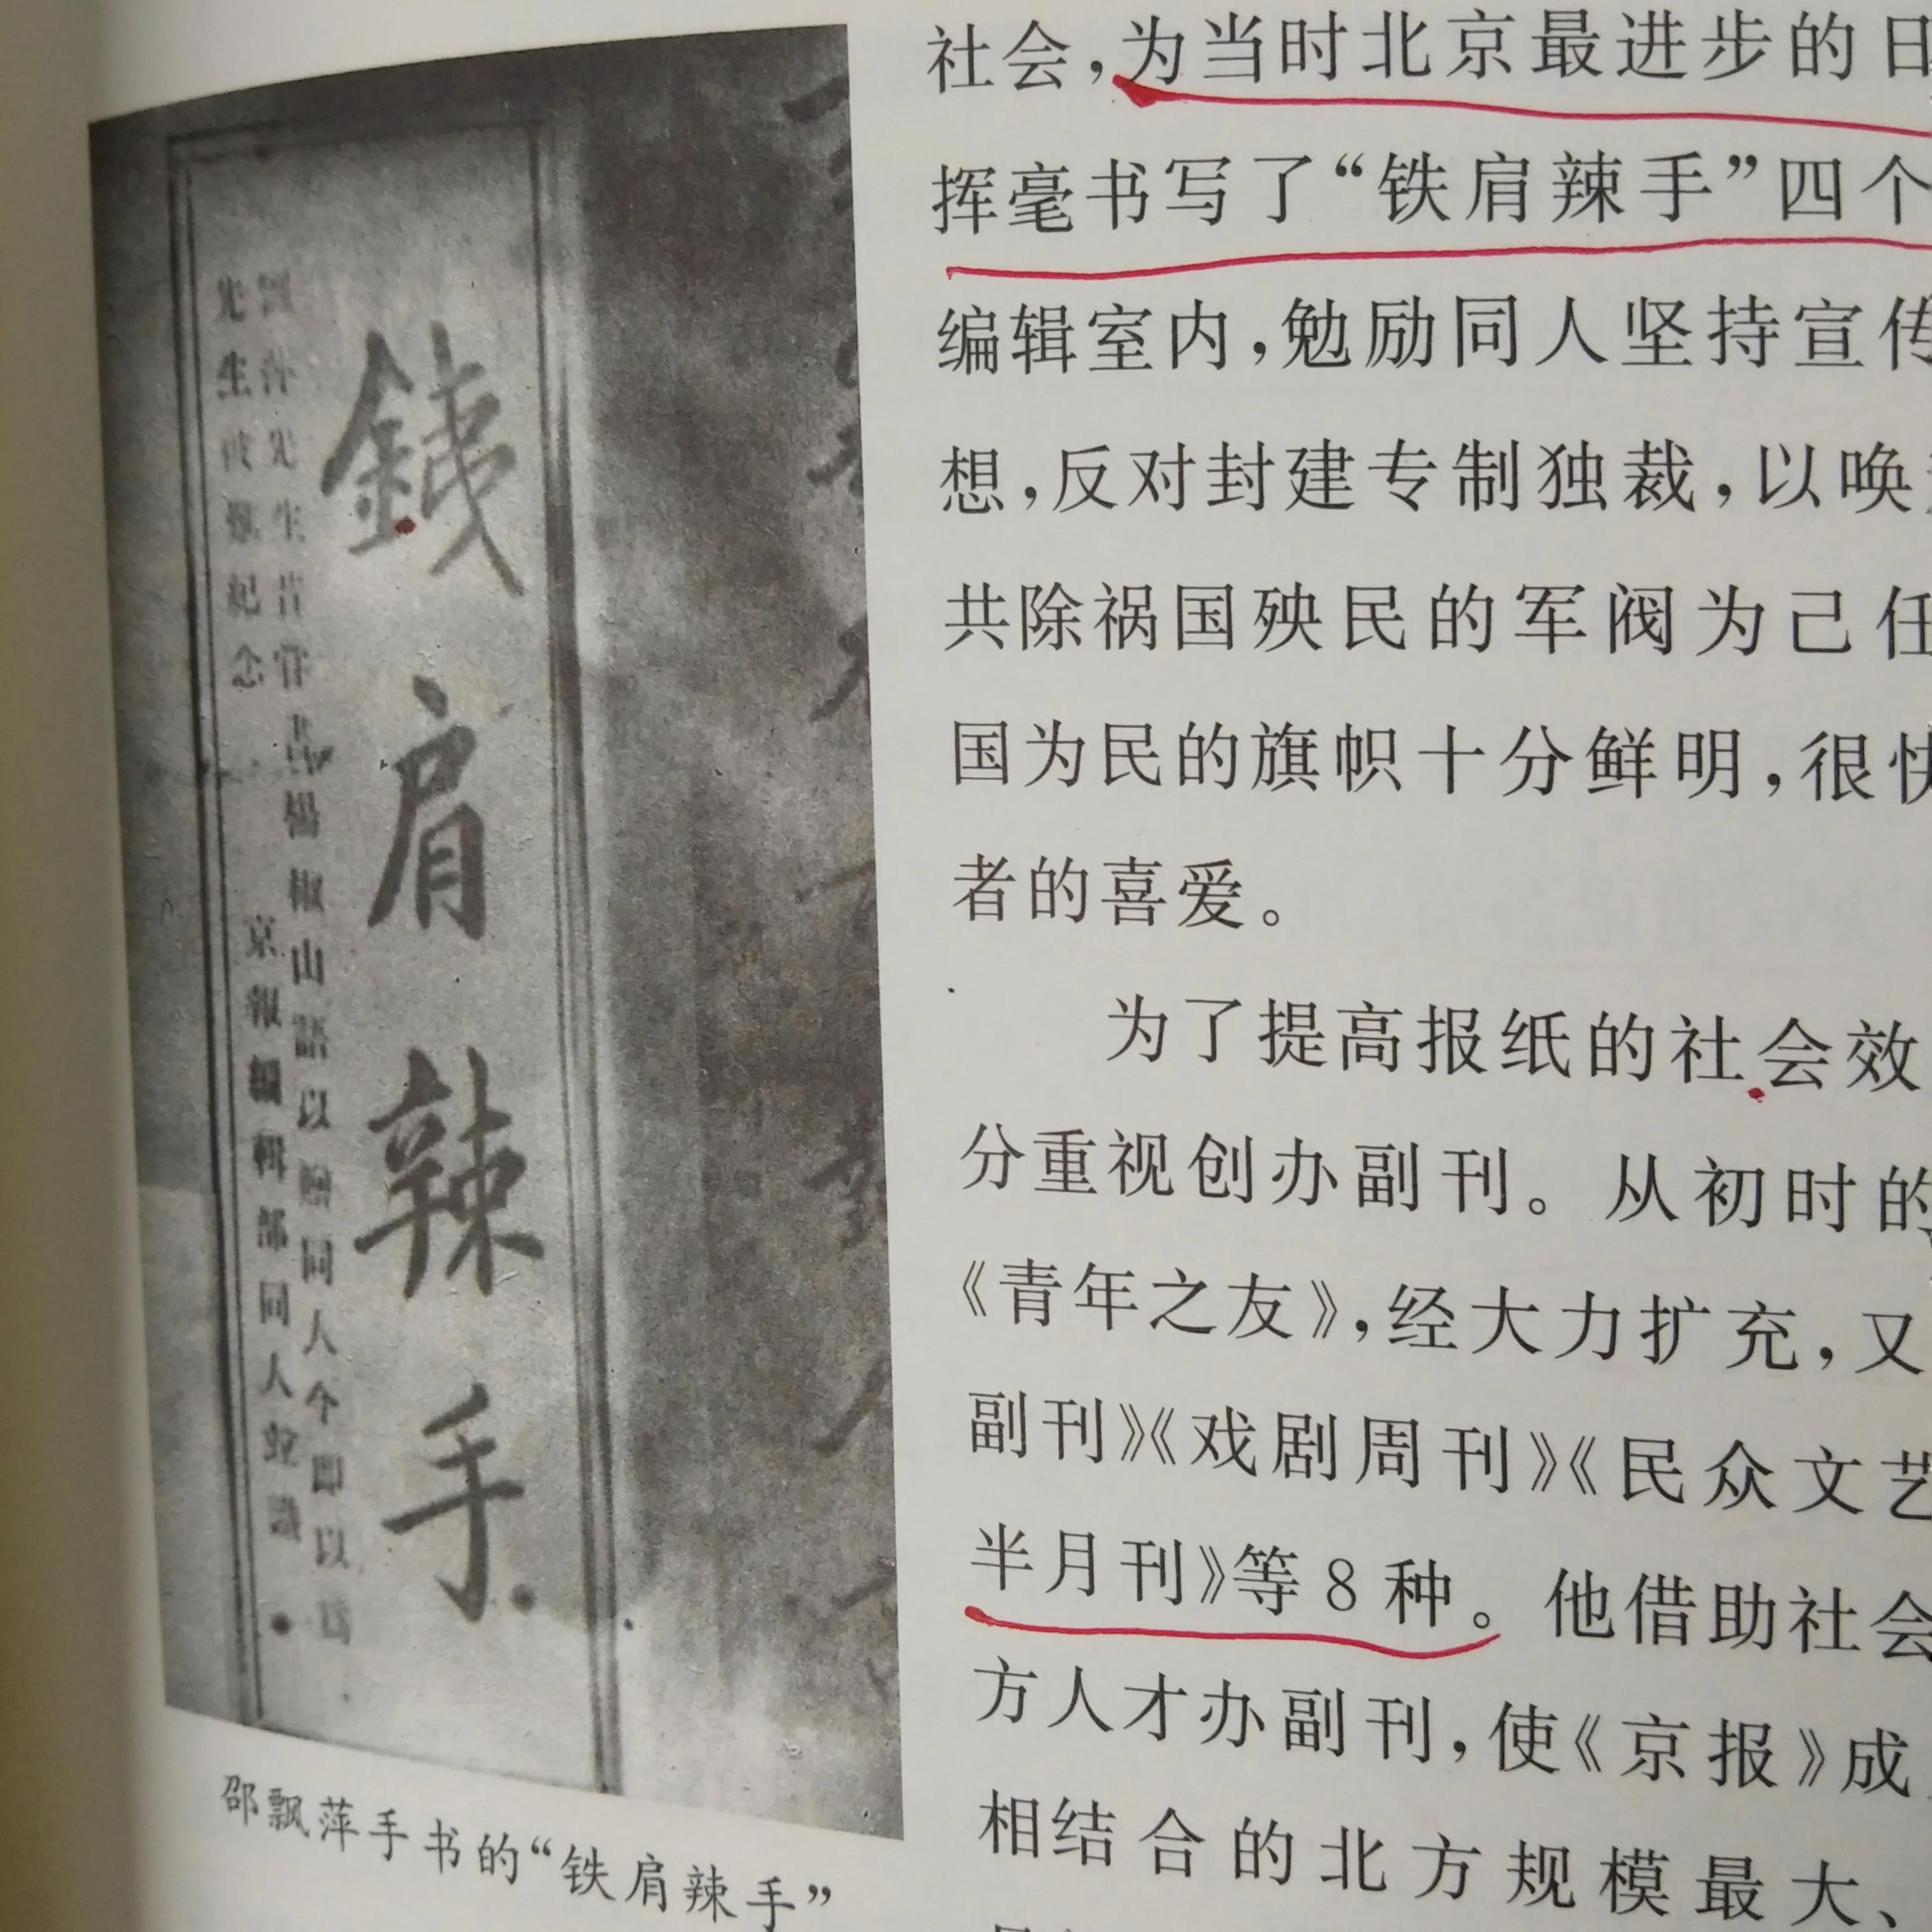 鐵肩辣手
先生吉言書楊椒山語以勉同人今即以為
先生被難紀念
京報編輯部同人並識
邵飘萍手书的“铁肩辣手”
社会，为当时北京最进步的日
挥毫书写了“铁肩辣手”四个
编辑室内，勉励同人坚持宣传
想，反对封建专制独裁，以唤
共除祸国殃民的军阀为己任
国为民的旗帜十分鲜明，很快
者的喜爱。
为了提高报纸的社会效
分重视创办副刊。从初时的
《青年之友》，经大力扩充，又
副刊》《戏剧周刊》《民众文艺
半月刊》等8种。他借助社会
方人才办副刊，使《京报》成
相结合的北方规模最大、